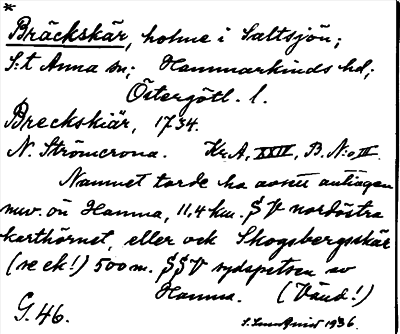 *
Bräckskär, holme i Saltsjön;
S:t Anna sn; Hammarkinds hd;
Östergötl. l.
Breckskiär, 1734.
N. Strömcrona. Kr.A, XXIV, B. N:o II.
Namnet torde ha avsett antingen
nuv. ön Hamna, 11,4 km. SV nordöstra
karthörnet, eller ock Skogsbergsskär
(se ek!) 500 m. SSV sydspetsen av
Hamna. (Vänd!)
G. 46.
1936.